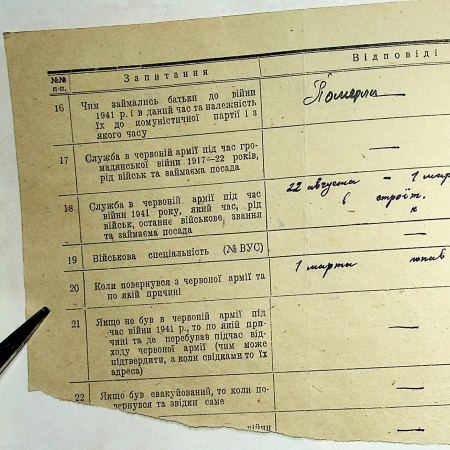 №№
п-п.
Запитання
Відповіді
16
Чим займались батьки до війни
1941 р. і в даний час та належність
їх до комуністичної партії і з
якого часу
Померли
17
Служба в червоній армії під час гро-
мадянської війни 1917—22 років,
рід військ та займаєма посада
—
18
Служба в червоній армії під час
війни 1941 року, який час, рід
військ, останнє військове звання
та займаєма посада
22 августа — 1 мар
в строит.
к
19
Військова спеціальність (№ ВУС)
—
20
Коли повернувся з червоної армії та
по якій причині
1 марта попав
21
Якщо не був в червоній армії під
час війни 1941 р., то по якій при-
чині та де перебував підчас від-
ходу червоної армії (чим може
підтвердити, а коли свідками то їх
адреса)
—
22
Якщо був евакуйований, то коли по-
вернувся та звідки саме
—
війни
—